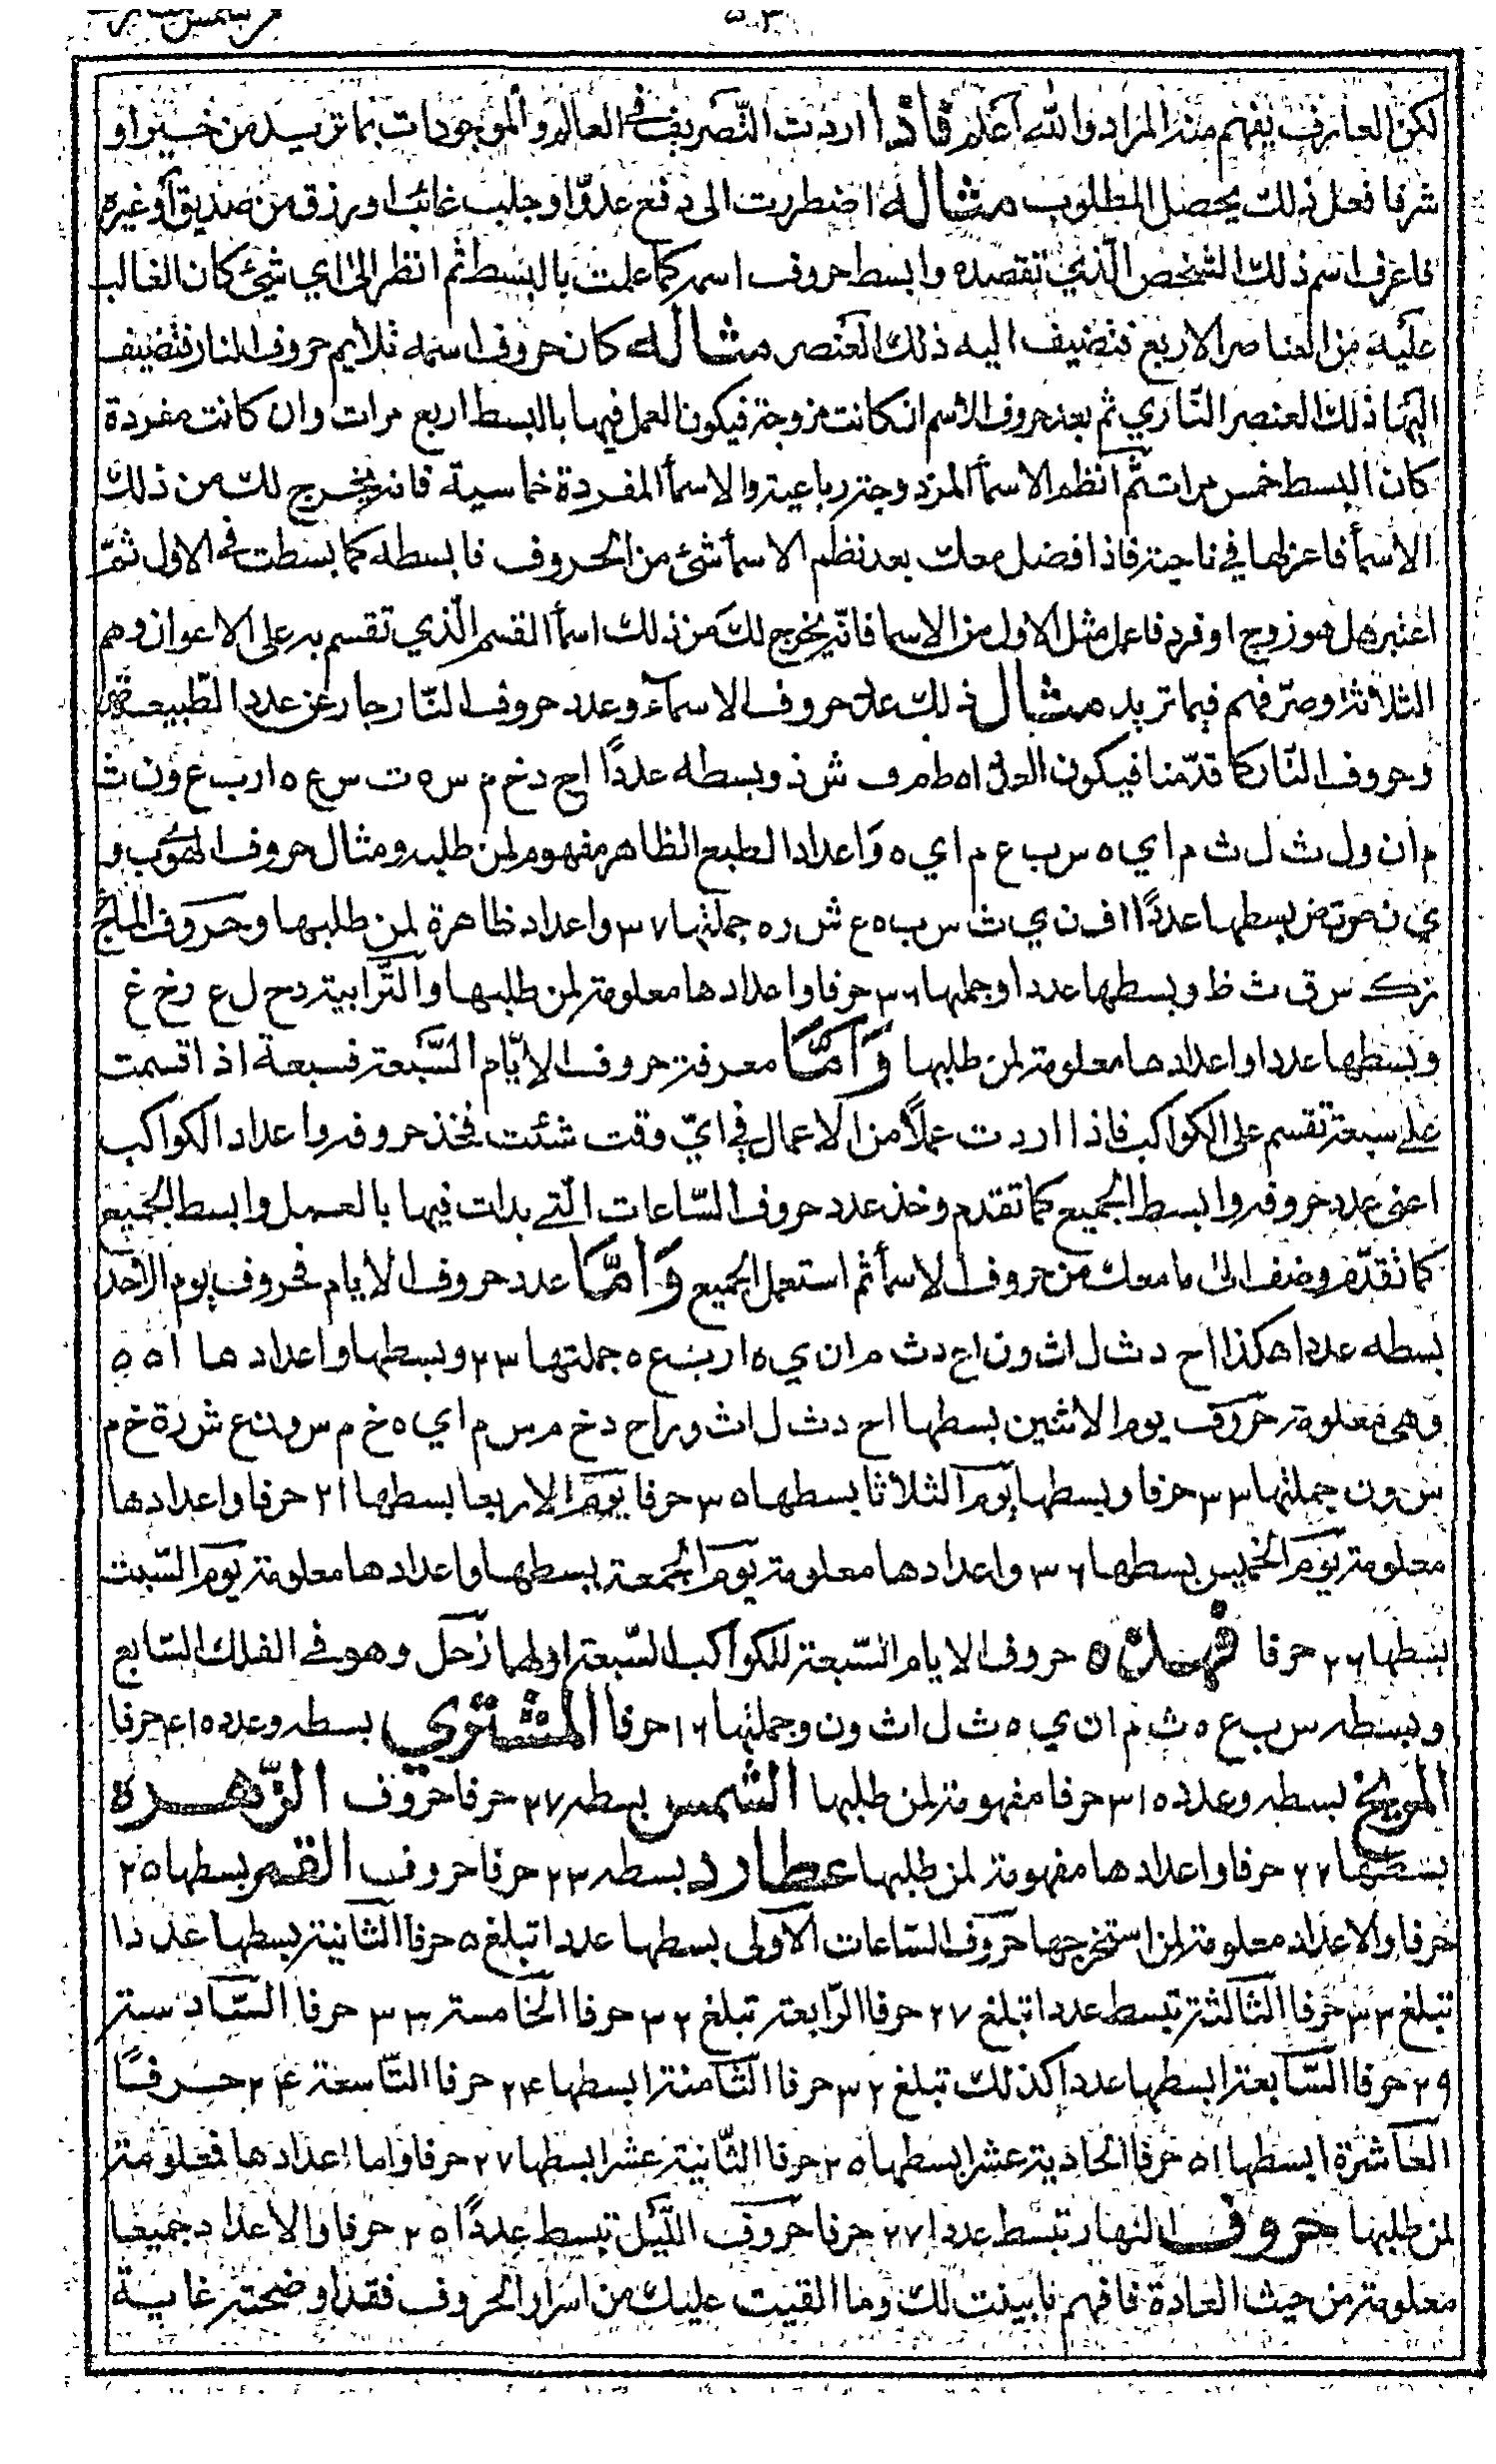 لكن العارف يفهم منه المراد والله اعلم فاذا اردت التصريف في العالم والموجودات بما تريد من خير او
شر فافعل ذلك يحصل المطلوب مثاله اضطررت الى دفع عدو او جلب غائب او رزق من صديق او غيره
فاعرف اسم ذلك الشخص الذي تقصده وابسط حروف اسمه كما علمت بالبسط ثم انظر الى اي شئ كان الغالب
عليه من العناصر الاربع فتضيف اليه ذلك العنصر مثاله كان حروف اسمه تلايم حروف النار فتضيف
اليها ذلك العنصر الناري ثم بعد حروف الاسم ان كانت مزوجة فيكون العمل فيها بالبسط اربع مرات وان كانت مفردة
كان البسط خمس مرات ثم انظم الاسمأ المزدوجة رباعية والاسمأ المفردة خماسية فانه يخرج لك من ذلك
الاسمأ فاعزلها في ناحية فاذا فضل معك بعد نظم الاسمأ شئ من الحروف فابسطه كما بسطت في الاول ثم
اعتبر هل هو زوج او فرد فاعمل مثل الاول من الاسما فانه يخرج لك من ذلك اسمأ القسم الذي تقسم به على الاعوان وهم
الثلاثة وصرفهم فيما تريد مثال ذلك عدد حروف الاسمآء وعدد حروف النار جار عن عدد الطبيعة
وحروف النار كما قدمنا فيكون العدد ا ه ط م ف ش ذ وبسطه عددًا ا ح د خ م س ه ت س ع ه ا ر ب ع و ن ث
م ا ن و ل ث ل ث م ا ي ه س ب ع م ا ي ه واعداد الطبع الظاهر مفهوم لمن طلبه ومثال حروف الهوى ب و
ي ن ص ت ض بسطها عددًا ا ف ن ي ث س ب ه ع ش ر ه جملتها ٣٧ واعداد ظاهرة لمن طلبها وحروف الملح
ز ك س ق ث ظ وبسطها عددا وجملها ٣٦ حرفا واعدادها معلومة لمن طلبها والترابية د ح ل ع ر خ غ
وبسطها عددا واعدادها معلومة لمن طلبها وَأَمَّا معرفة حروف الايام السبعة فسبعة اذا قسمت
على سبعة تقسم على الكواكب فاذا اردت عملاً من الاعمال في اي وقت شئت فخذ حروفه واعداد الكواكب
اعني عدد حروفه وابسط الجميع كما تقدم وخذ عدد حروف الساعات التي بدات فيها بالعمل وابسط الجميع
كما تقدم وضف الى ما معك من حروف الاسمأ ثم استعمل الجميع وَأَمَّا عدد حروف الايام فحروف يوم الاحد
بسطه عددا هكذا ا ح د ث ل ا ث و ن ا ح د ث م ا ن ي ه ا ر ب ع ه جملتها ٢٣ وبسطها واعدادها ٥٥١
وهي معلومة حروف يوم الاثنين بسطها ا ح د ث ل ا ث و ر ا ح د خ م س م ا ي ه خ م س و ن ع ش ر ة خ م
س و ن جملتها ٣٣ حرفا وبسطها يوم الثلاثا بسطها ٣٥ حرفا يوم الاربعا بسطها ٢١ حرفا واعدادها
معلومة يوم الخميس بسطها ٣٦ واعدادها معلومة يوم الجمعة بسطها واعدادها معلومة يوم السبت
بسطها ٢٦ حرفا فهذه حروف الايام السبعة للكواكب السبعة اولها زحل وهو في الفلك السابع
وبسطه س ب ع ه ث م ا ن ي ه ث ل ا ث و ن وجملتها ١٦ حرفا المشتري بسطه وعدده ٤١ حرفا
المريخ بسطه وعدده ٣١ حرفا مفهومة لمن طلبها الشمس بسطه ٢٧ حرفا حروف الزهره
بسطها ٢٢ حرفا واعدادها مفهومة لمن طلبها عطارد بسطه ٢٣ حرفا حروف القمر بسطها ٢٥
حرفا والاعداد معلومة لمن استخرجها حروف الساعات الاولى بسطها عددا تبلغ ٥ حرفا الثانية بسطها عددا
تبلغ ٣٣ حرفا الثالثة تبسط عددا تبلغ ٢٧ حرفا الرابعة تبلغ ٣٢ حرفا الخامسة ٣٣ حرفا السادسة
٢٩ حرفا السابعة ابسطها عددا كذلك تبلغ ٣٢ حرفا الثامنة ابسطها ٢٤ حرفا التاسعة ٢٤ حرفًا
العاشرة ابسطها ٥١ حرفا الحادية عشر ابسطها ٢٥ حرفا الثانية عشر ابسطها ٢٧ حرفا واما اعدادها فمعلومة
لمن طلبها حروف النهار تبسط عددا ٢٧ حرفا حروف الليل تبسط عددًا ٢٥ حرفا والاعداد جميعا
معلومة من حيث العادة فافهم ما بينت لك وما القيت عليك من اسرار الحروف فقد اوضحته غاية